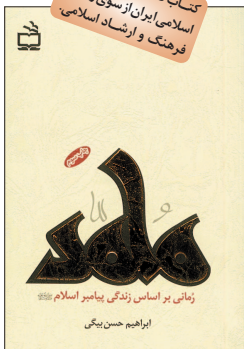 کتاب
اسلامی ایران از سوی
فرهنگ و ارشاد اسلامی.
محمد
رُمانی بر اساس زندگی پیامبر اسلام
ابراهیم حسن‌بیگی